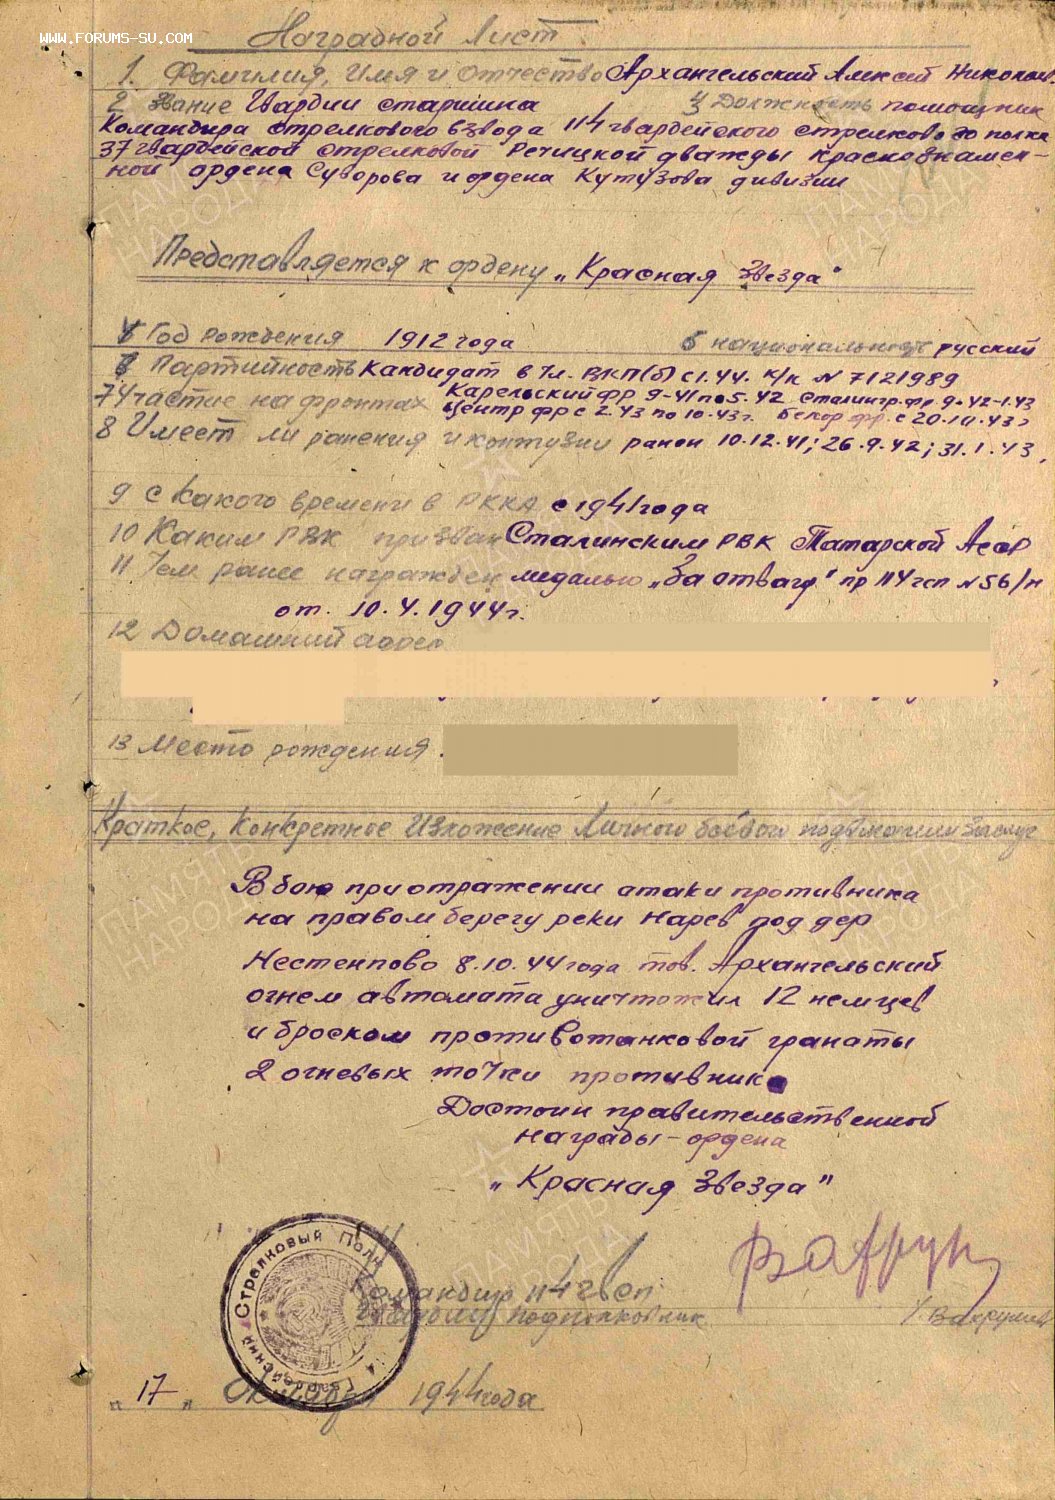 WWW.FORUMS-SU.COM
Наградной Лист
1. Фамилия, Имя и Отчество Архангельский Алексей Николаев.
2 Звание Гвардии старшина 3 Должность помощник
Командира стрелкового взвода 114 гвардейского стрелкового полка
37 гвардейской стрелковой Речицкой дважды краснознамен-
ной ордена Суворова и ордена Кутузова дивизии
Представляется к ордену „Красная Звезда"
4 Год рождения 1912 года 5 национальность русский
6 Партийность Кандидат в чл. ВКП(б) с 1.44. к/к N 7121989
7 Участие на фронтах Карельский фр 9-41 по 5.42 Сталингр. фр 9.42-1.43
Центр фр с 2.43 по 10.43г. Белор фр. с 20.10.43г
8 Имеет ли ранения и контузии ранен 10.12.41; 26.9.42; 31.1.43,
9 С какого времени в РККА с 1941 года
10 Каким РВК призван Сталинским РВК Татарской Асср
11 Чем ранее награжден медалью „За отвагу" пр 114 гсп N 56/н
от. 10.4.1944г.
12 Домашний адрес
13 Место рождения.
Краткое, конкретное изложение Личного боевого подвига или заслуг
В бою при отражении атаки противника
на правом берегу реки Нарев под дер
Нестемпово 8.10.44 года тов. Архангельский
огнем автомата уничтожил 12 немцев
и броском противотанковой гранаты
2 огневых точки противника
Достоин правительственной
награды - ордена
„Красная Звезда"
Командир 114 гвсп
Гвардии подполковник
Гвардейский Стрелковый Полк
„17" Октября 1944 года
ПАМЯТЬ НАРОДА